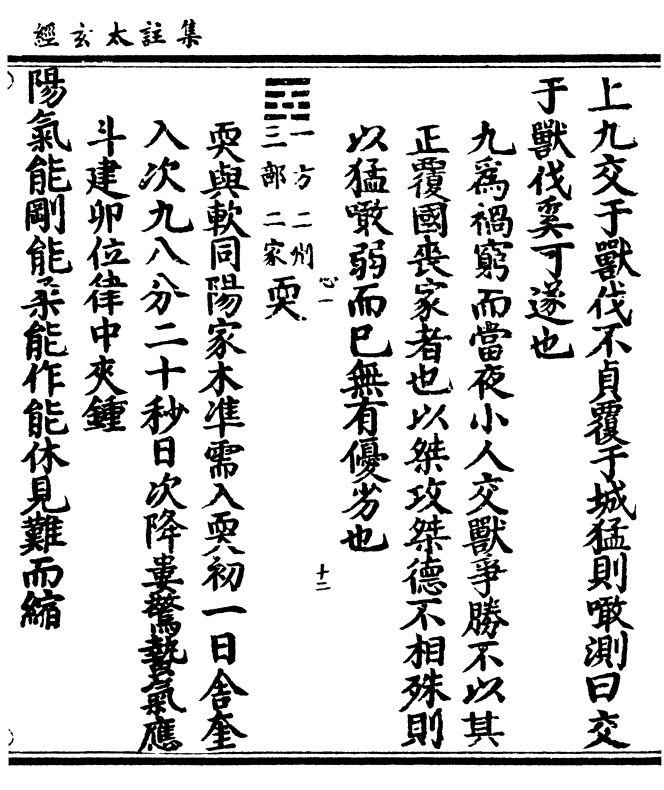 集註太玄經
上九交于獸伐不貞覆于城猛則噉測曰交
于獸伐奚可遂也
九為禍窮而當夜小人交獸爭勝不以其
正覆國喪家者也以桀攻桀德不相殊則
以猛噉弱而已無有優劣也
十二
一方二州
三部二家
耎
心一
耎與軟同陽家木準需入耎初一日舍奎
入次九八分二十秒日次降婁驚蟄氣應
斗建卯位律中夾鍾
陽氣能剛能柔能作能休見難而縮